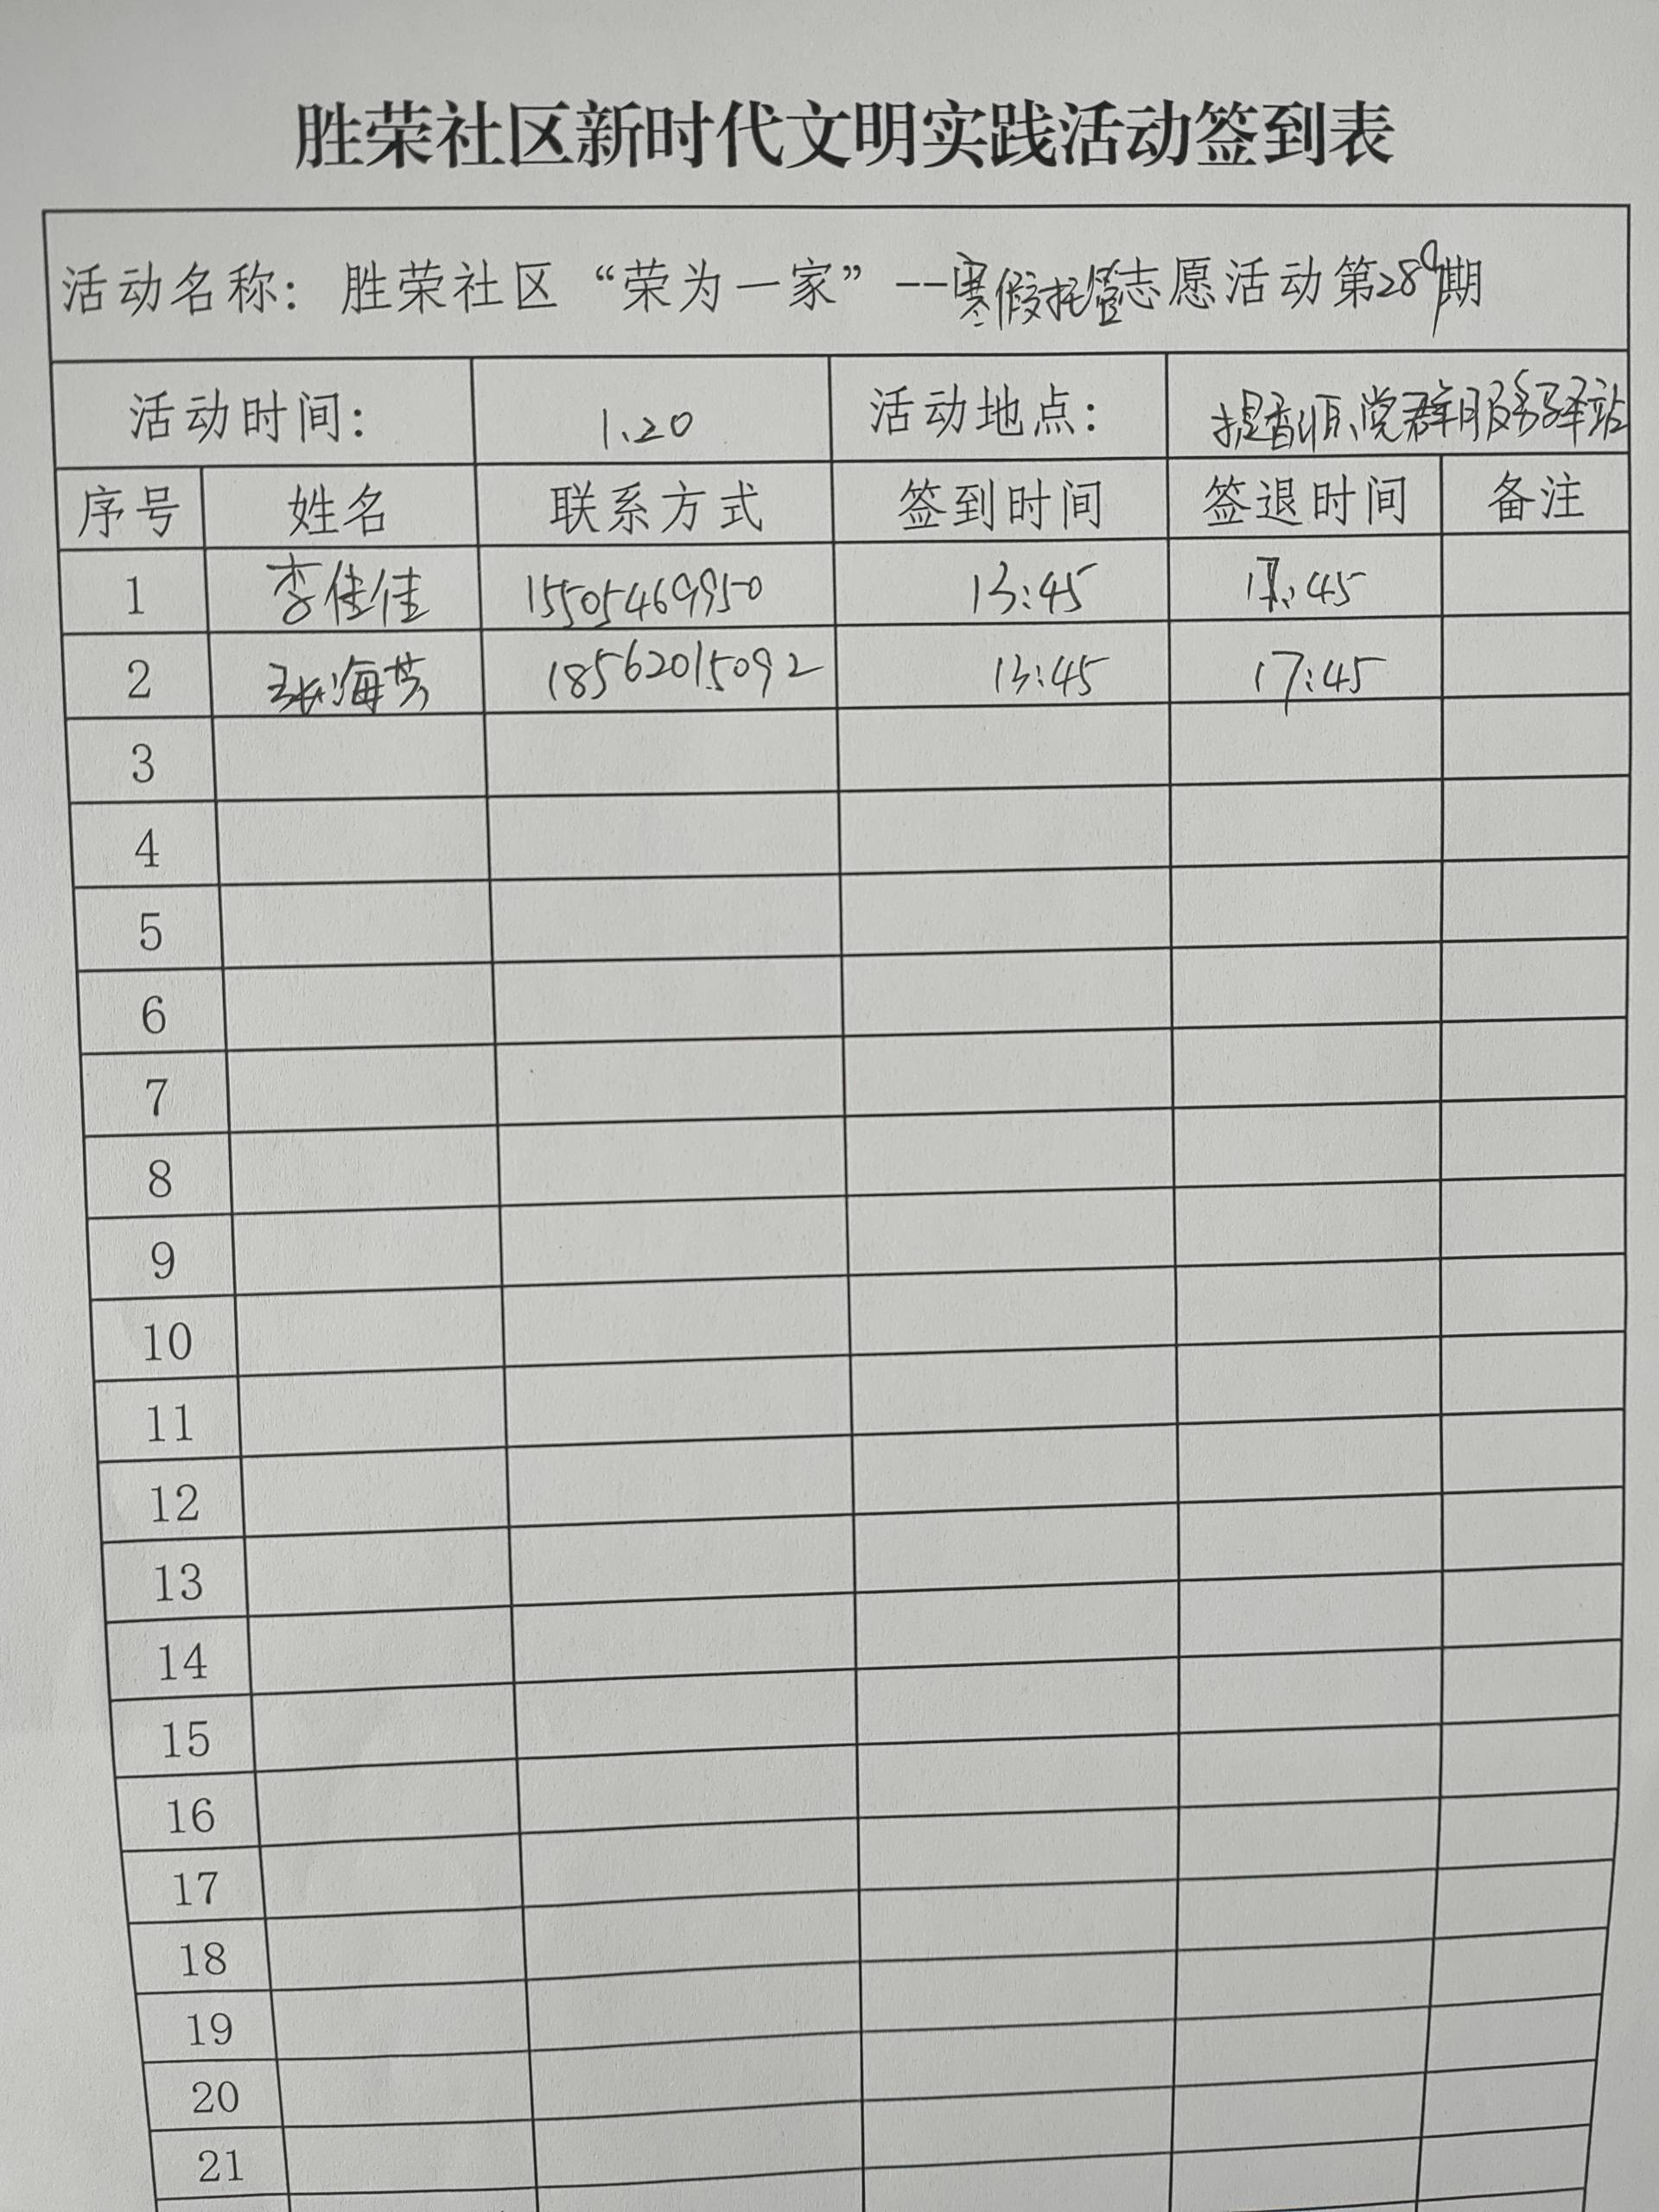 胜荣社区新时代文明实践活动签到表
活动名称：胜荣社区“荣为一家”--寒假托管志愿活动第289期
活动时间： 1.20 活动地点： 提香郡党群服务驿站
序号 姓名 联系方式 签到时间 签退时间 备注
1 李佳佳 15505469950 13:45 17:45
2 张海芳 18562015092 13:45 17:45
3
4
5
6
7
8
9
10
11
12
13
14
15
16
17
18
19
20
21